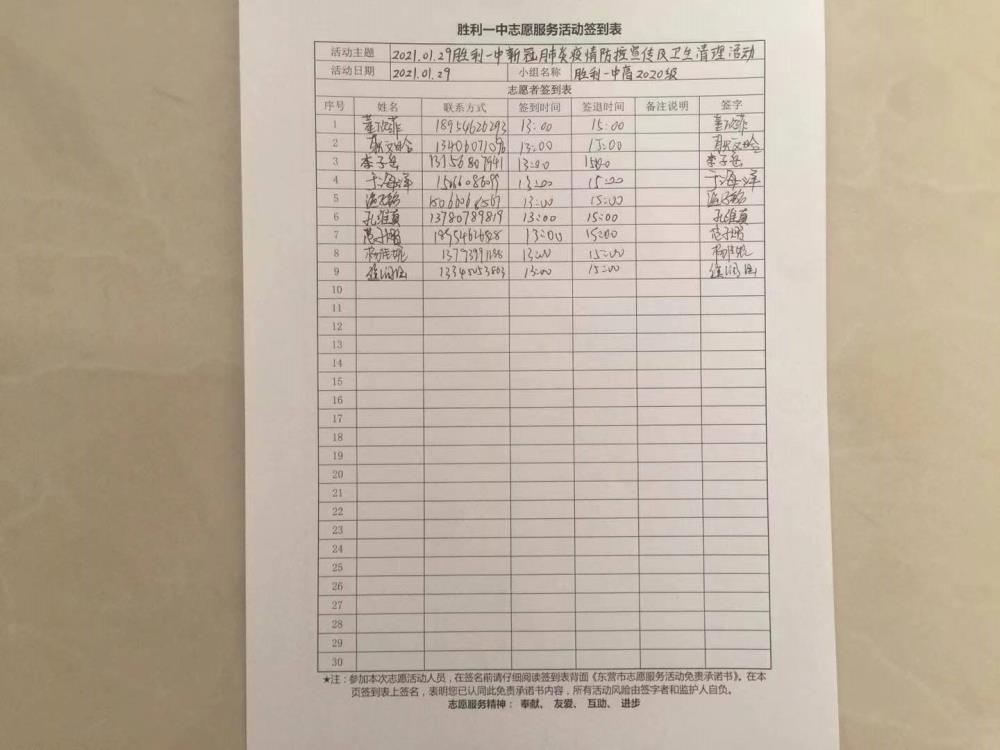 胜利一中志愿服务活动签到表
活动主题 2021.01.29胜利一中新冠肺炎疫情防控宣传及卫生清理活动
活动日期 2021.01.29 小组名称 胜利一中高2020级
志愿者签到表
序号 姓名 联系方式 签到时间 签退时间 备注说明 签字
1 18954626293 13:00 15:00
2 13406071096 13:00 15:00
3 李子岳 13156807941 13:00 1500 李子岳
4 于海洋 13:00 15:00 于海洋
5 13:00 15:00
6 孔维真 13780789819 13:00 15:00 孔维真
7 13:00 15:00
8 13:00 15:00
9 13:00 15:00
10
11
12
13
14
15
16
17
18
19
20
21
22
23
24
25
26
27
28
29
30
★注：参加本次志愿活动人员，在签名前请仔细阅读签到表背面《东营市志愿服务活动免责承诺书》。在本
页签到表上签名，表明您已认同此免责承诺书内容，所有活动风险由签字者和监护人自负。
志愿服务精神： 奉献、 友爱、 互助、 进步